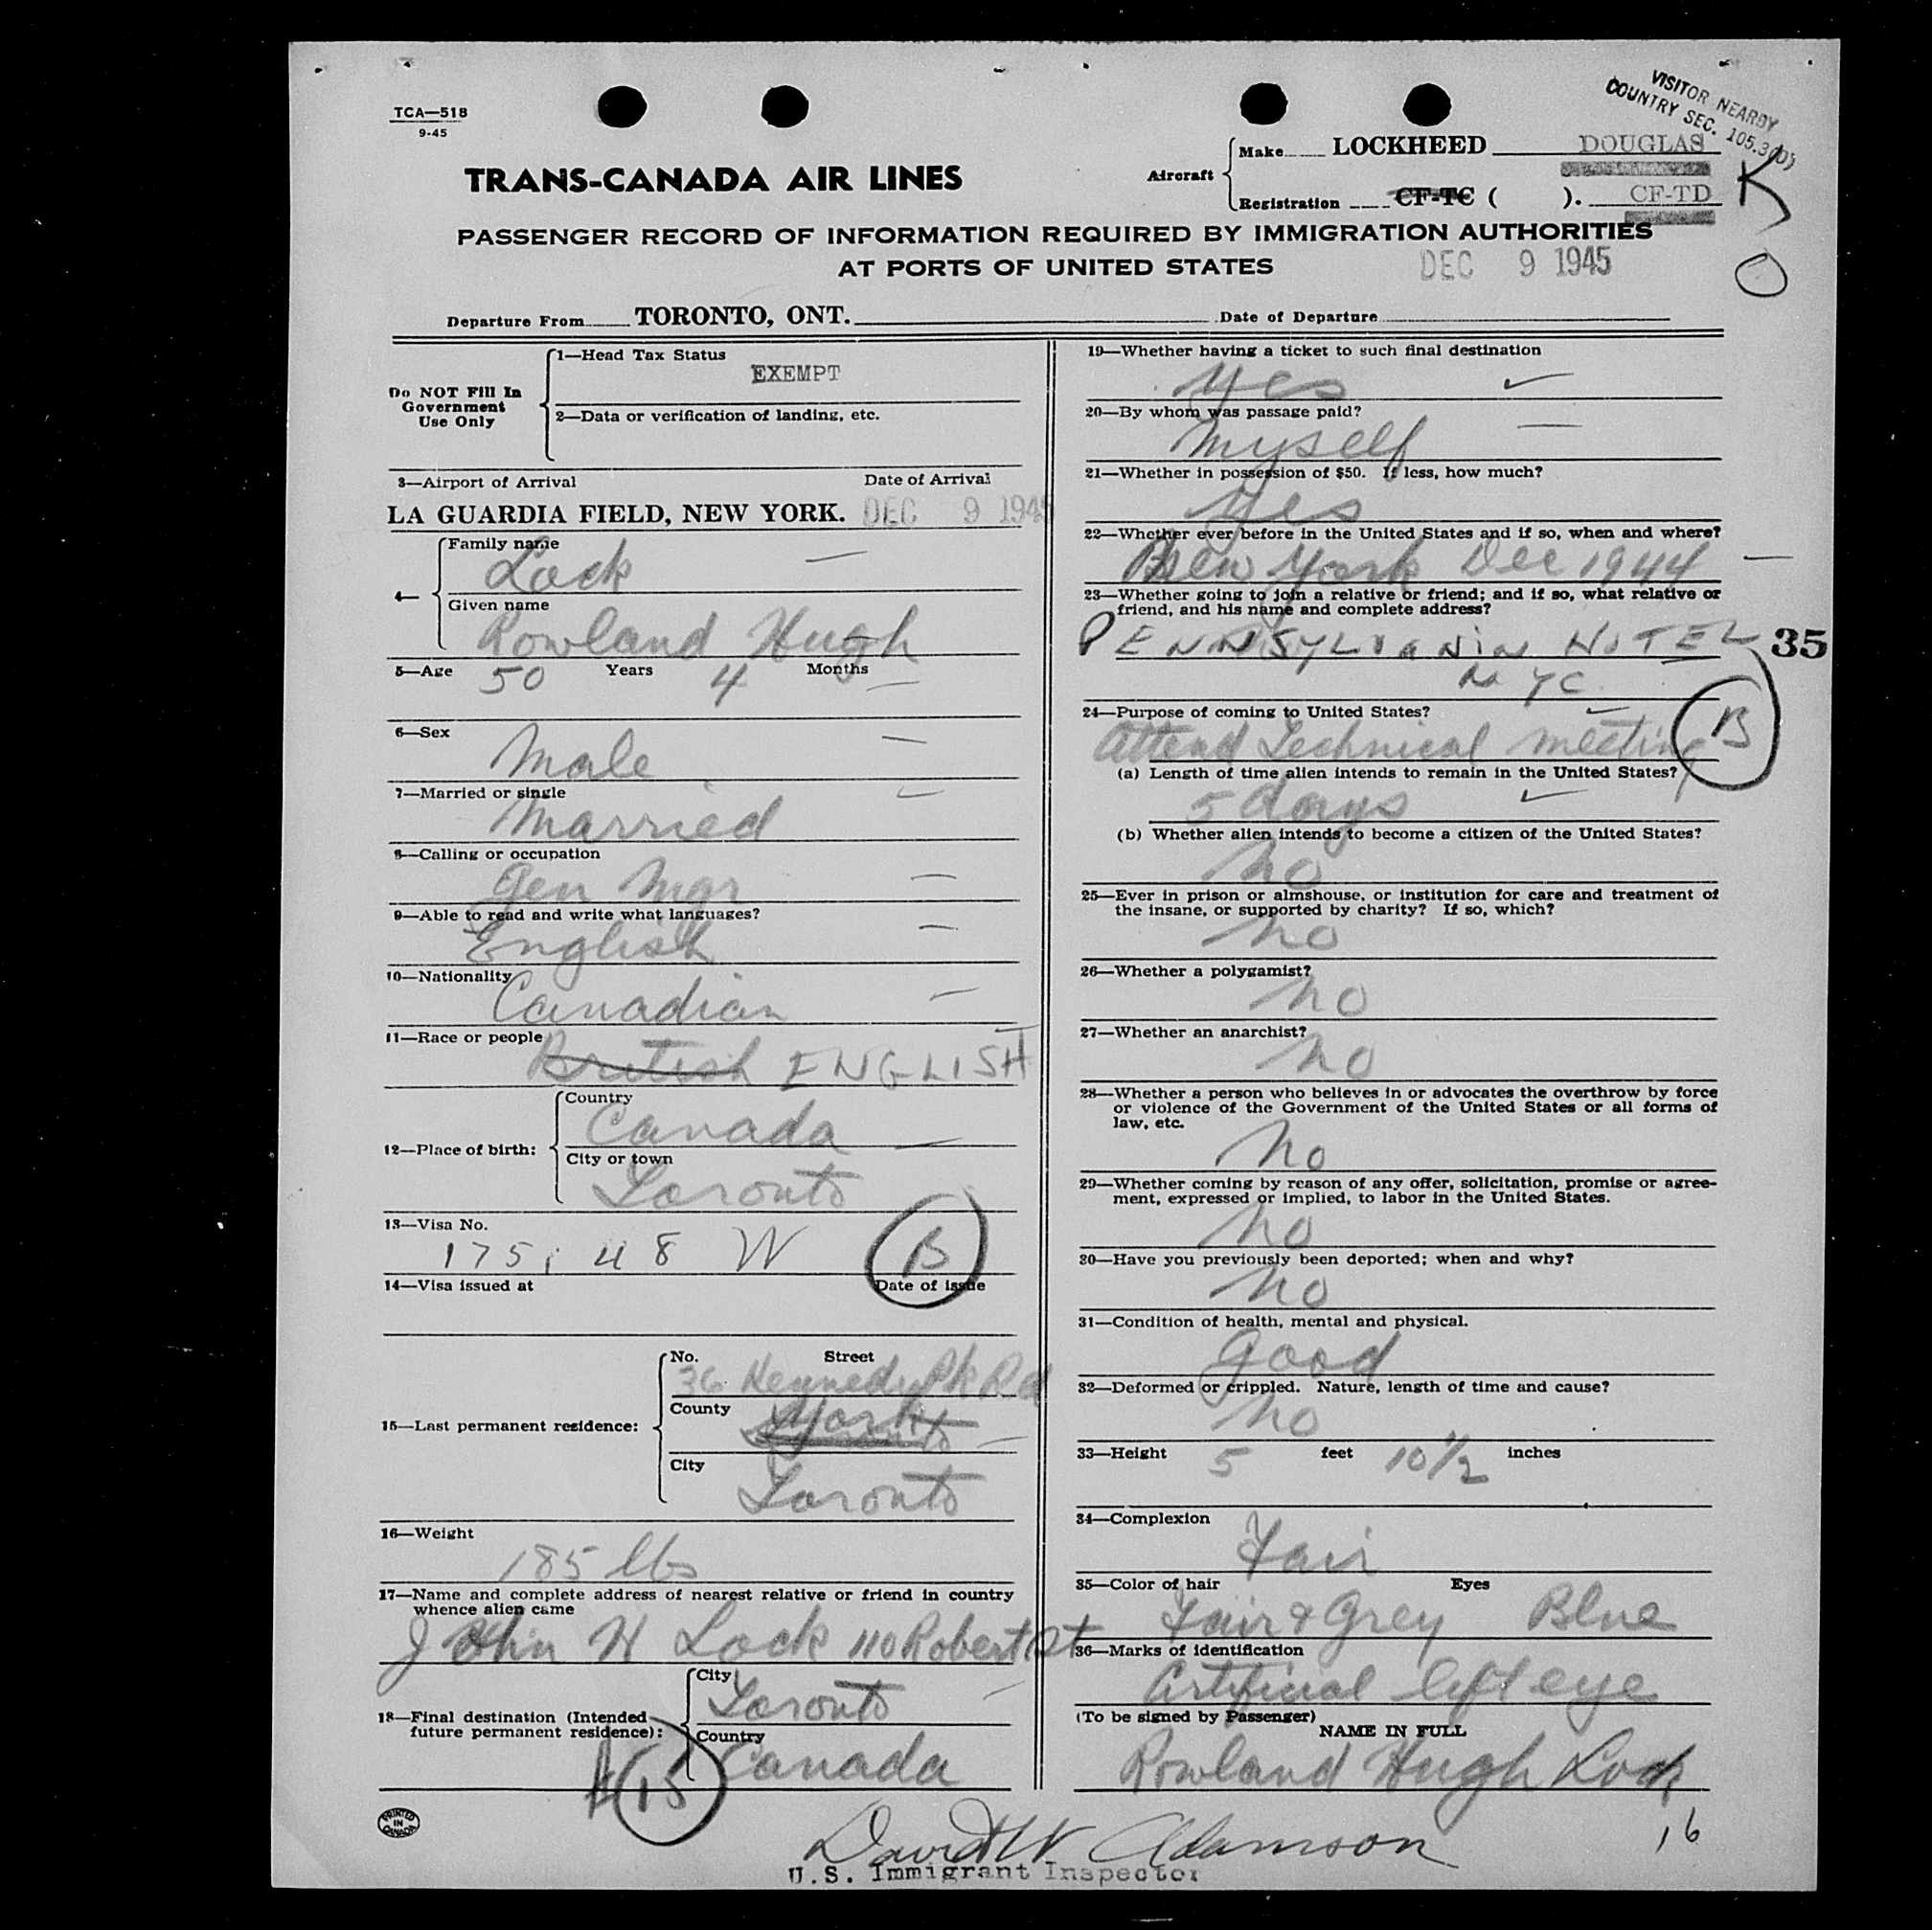 VISITOR NEARBY
COUNTRY SEC. 105.3(D)
TCA—518
9-45
TRANS-CANADA AIR LINES
Aircraft
Make LOCKHEED DOUGLAS
Registration CF-TC ( ). CF-TD
K
O
PASSENGER RECORD OF INFORMATION REQUIRED BY IMMIGRATION AUTHORITIES
AT PORTS OF UNITED STATES
DEC 9 1945
Departure From TORONTO, ONT. Date of Departure
Do NOT Fill In
Government
Use Only
1—Head Tax Status
EXEMPT
2—Data or verification of landing, etc.
3—Airport of Arrival Date of Arrival
LA GUARDIA FIELD, NEW YORK. DEC 9 1945
4—
Family name
Lock
Given name
Rowland Hugh
5—Age 50 Years 4 Months
6—Sex
Male
7—Married or single
Married
8—Calling or occupation
Gen Mgr
9—Able to read and write what languages?
English
10—Nationality
Canadian
11—Race or people
British ENGLISH
12—Place of birth:
Country
Canada
City or town
Toronto
13—Visa No.
175; 48 W B
14—Visa issued at Date of issue
15—Last permanent residence:
No. Street
36 Kennedy Pk Rd
County
York
Toronto
City
Toronto
16—Weight
185 lbs
17—Name and complete address of nearest relative or friend in country
whence alien came
John H Lock 110 Robert St
18—Final destination (Intended
future permanent residence):
City
Toronto
Country
Canada
15
PRINTED
IN
CANADA
19—Whether having a ticket to such final destination
Yes
20—By whom was passage paid?
Myself
21—Whether in possession of $50. If less, how much?
Yes
22—Whether ever before in the United States and if so, when and where?
New York Dec 1944
23—Whether going to join a relative or friend; and if so, what relative or
friend, and his name and complete address?
PENNSYLVANIA HOTEL
35
NYC
24—Purpose of coming to United States?
Attend Technical meeting
B
(a) Length of time alien intends to remain in the United States?
5 days
(b) Whether alien intends to become a citizen of the United States?
No
25—Ever in prison or almshouse, or institution for care and treatment of
the insane, or supported by charity? If so, which?
No
26—Whether a polygamist?
No
27—Whether an anarchist?
No
28—Whether a person who believes in or advocates the overthrow by force
or violence of the Government of the United States or all forms of
law, etc.
No
29—Whether coming by reason of any offer, solicitation, promise or agree-
ment, expressed or implied, to labor in the United States.
No
30—Have you previously been deported; when and why?
No
31—Condition of health, mental and physical.
Good
32—Deformed or crippled. Nature, length of time and cause?
No
33—Height 5 feet 10 1/2 inches
34—Complexion
Fair
35—Color of hair Eyes
Fair & Grey Blue
36—Marks of identification
Artificial left eye
(To be signed by Passenger)
NAME IN FULL
Rowland Hugh Lock
16
David W Adamson
U.S. Immigrant Inspector